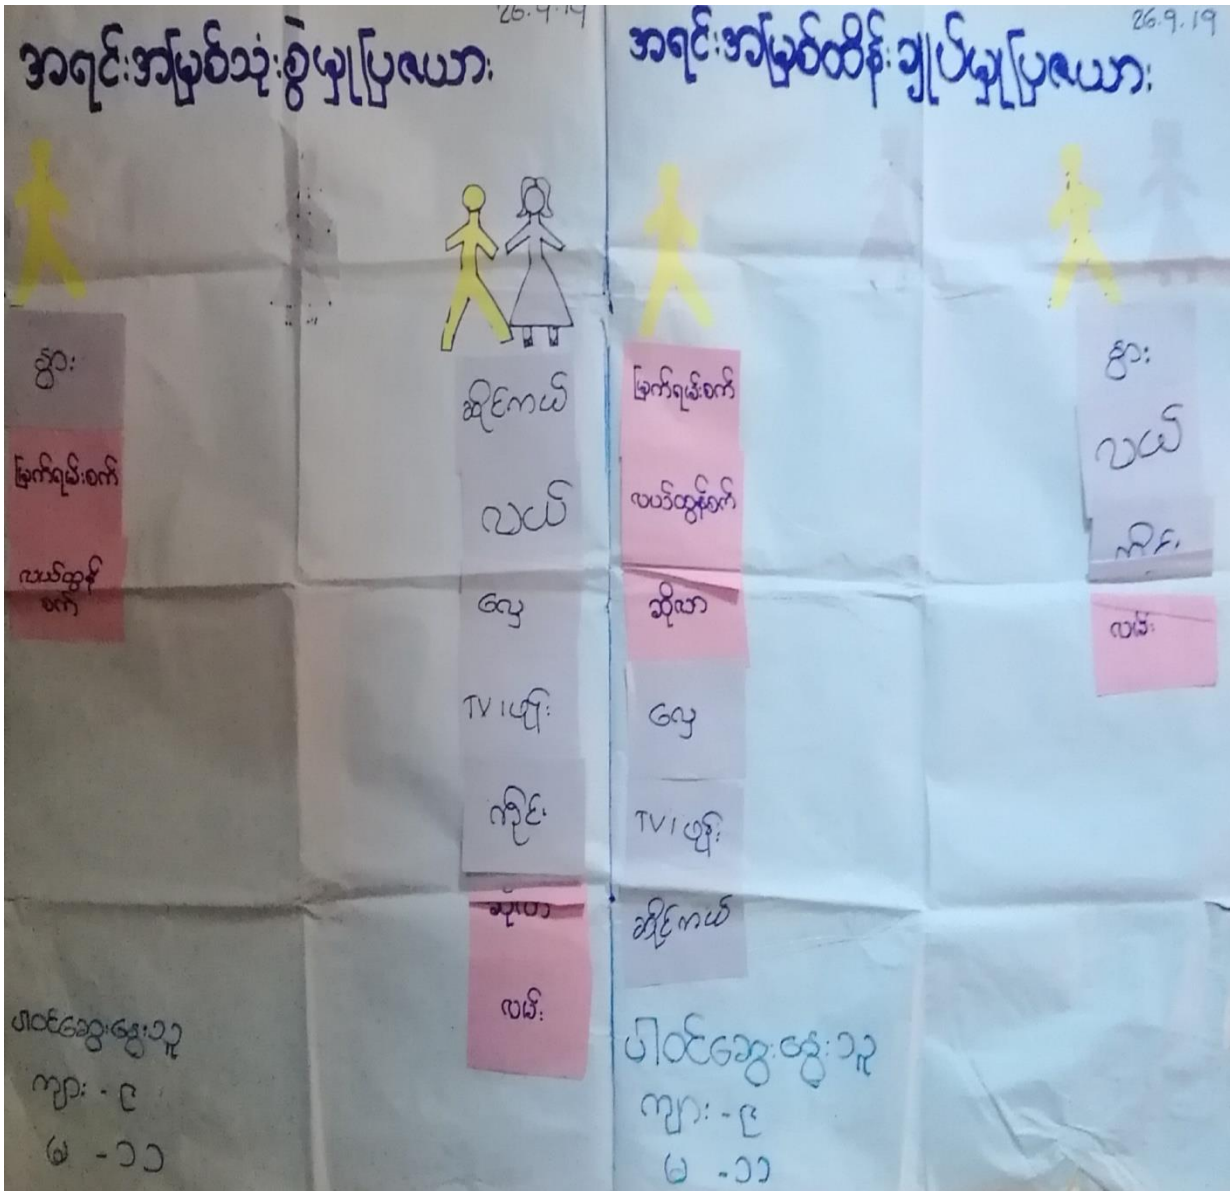 26.9.19
အရင်းအမြစ်သုံးစွဲမှုပြဇယား
နွား
မြက်ရမ်းစက်
လယ်ထွန်
စက်
ဆိုင်ကယ်
လယ်
လှေ
TV၊ဖုန်း
ကိုင်း
ဆိုလာ
လမ်း
ပါဝင်ဆွေးနွေးသူ
ကျား - ၉
မ - ၁၁
26.9.19
အရင်းအမြစ်ထိန်းချုပ်မှုပြဇယား
မြက်ရမ်းစက်
လယ်ထွန်စက်
ဆိုလာ
လှေ
TV၊ဖုန်း
ဆိုင်ကယ်
နွား
လယ်
ကိုင်း
လမ်း
ပါဝင်ဆွေးနွေးသူ
ကျား - ၉
မ - ၁၁